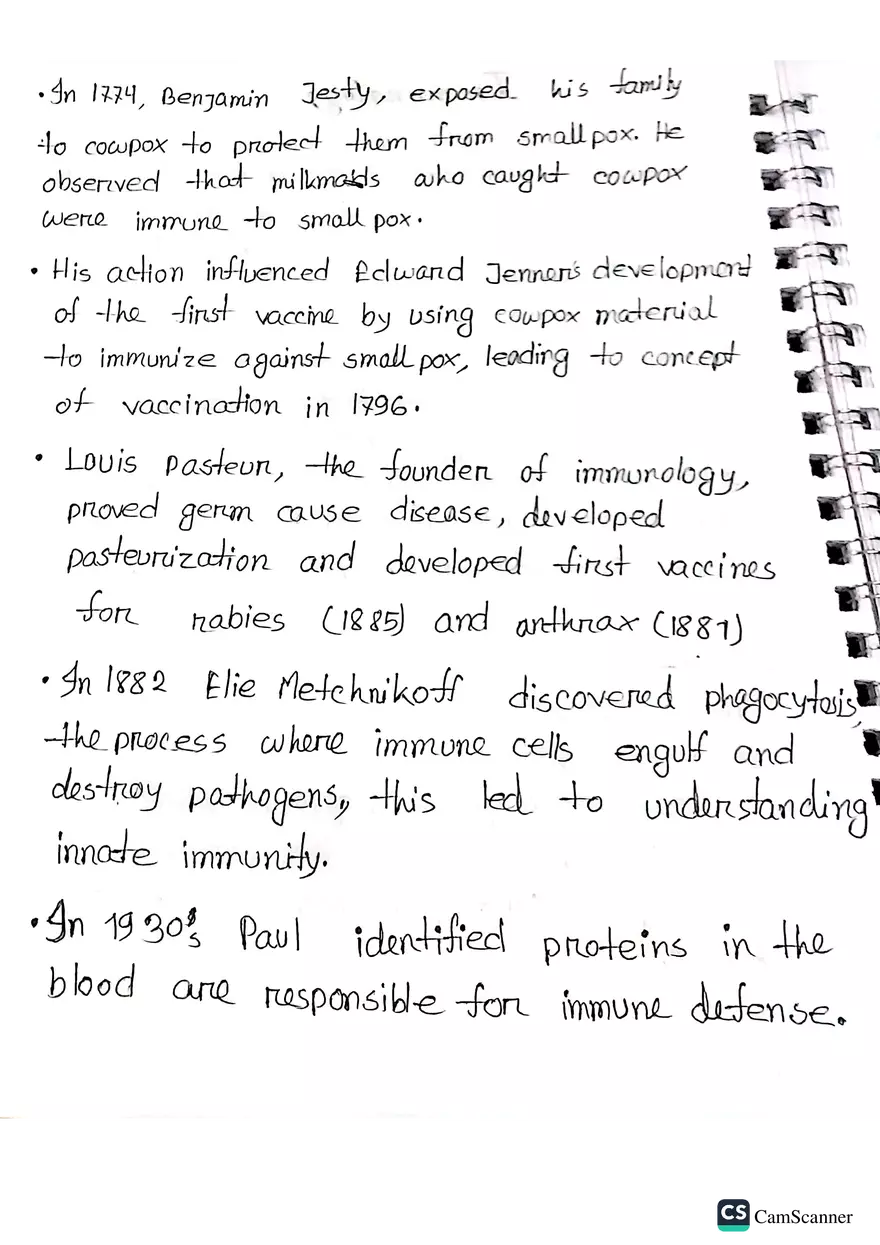 • In 1774, Benjamin Jesty, exposed his family
to cowpox to protect them from small pox. He
observed that milkmaids who caught cowpox
were immune to small pox.
• His action influenced Edward Jenner's development
of the first vaccine by using cowpox material
to immunize against small pox, leading to concept
of vaccination in 1796.
• Louis Pasteur, the founder of immunology,
proved germ cause disease, developed
pasteurization and developed first vaccines
for rabies (1885) and anthrax (1881)
• In 1882 Elie Metchnikoff discovered phagocytosis,
the process where immune cells engulf and
destroy pathogens, this led to understanding
innate immunity.
• In 1930's Paul identified proteins in the
blood are responsible for immune defense.
CS CamScanner